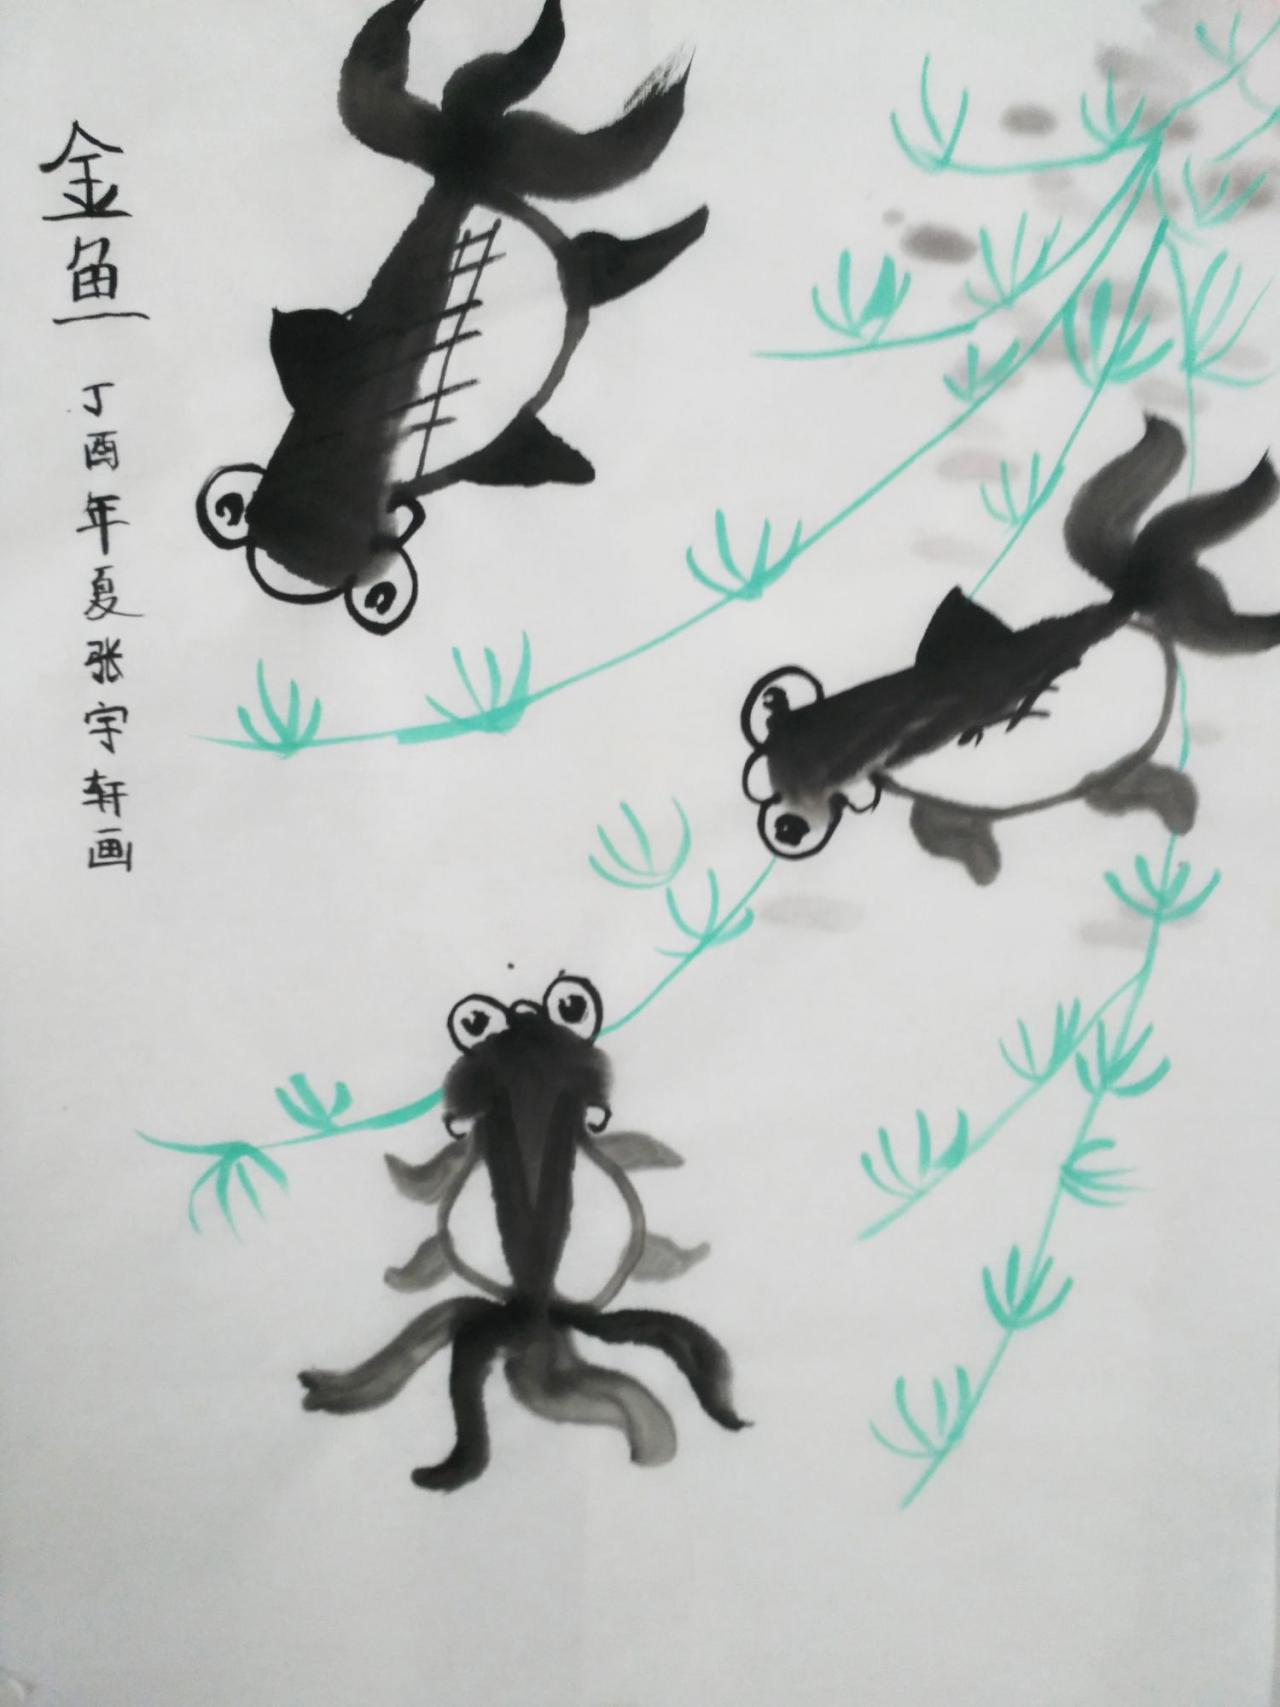 金鱼
丁酉年夏张宇轩画